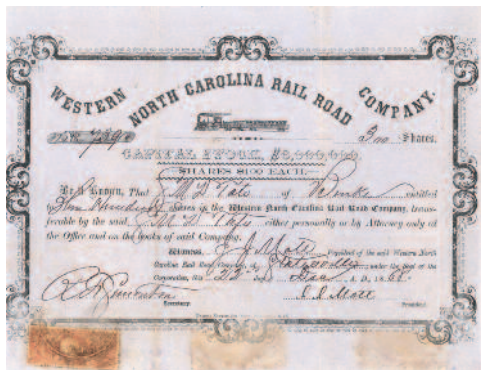 WESTERN NORTH CAROLINA RAIL ROAD COMPANY.
No. 789 300 Shares.
CAPITAL STOCK, $6,000,000.
SHARES $100 EACH.
Be it Known, That of Burke entitled
to Three Hundred shares in the Western North Carolina Rail Road Company, trans-
ferable by the said either personally or by Attorney only at
the Office and on the books of said Company.
Witness, J. J. Mott President of the said Western North
Carolina Rail Road Company, at Statesville under the Seal of the
Corporation, this 23 day Dec A. D. 18
Secretary. President.